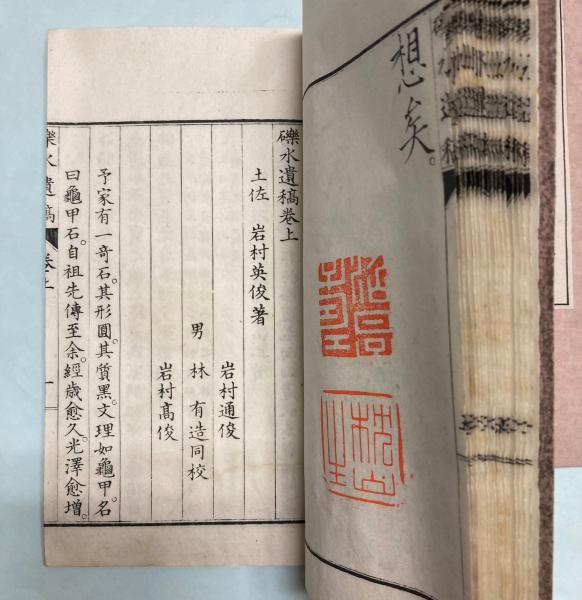 想矣。
礫水遺稿卷上
土佐 岩村英俊著
岩村通俊
男 林 有造同校
岩村高俊
予家有一奇石。其形圓。其質黑。文理如龜甲。名
曰龜甲石。自祖先傳至余。經歲愈久。光澤愈增。
礫水遺稿 卷上 一